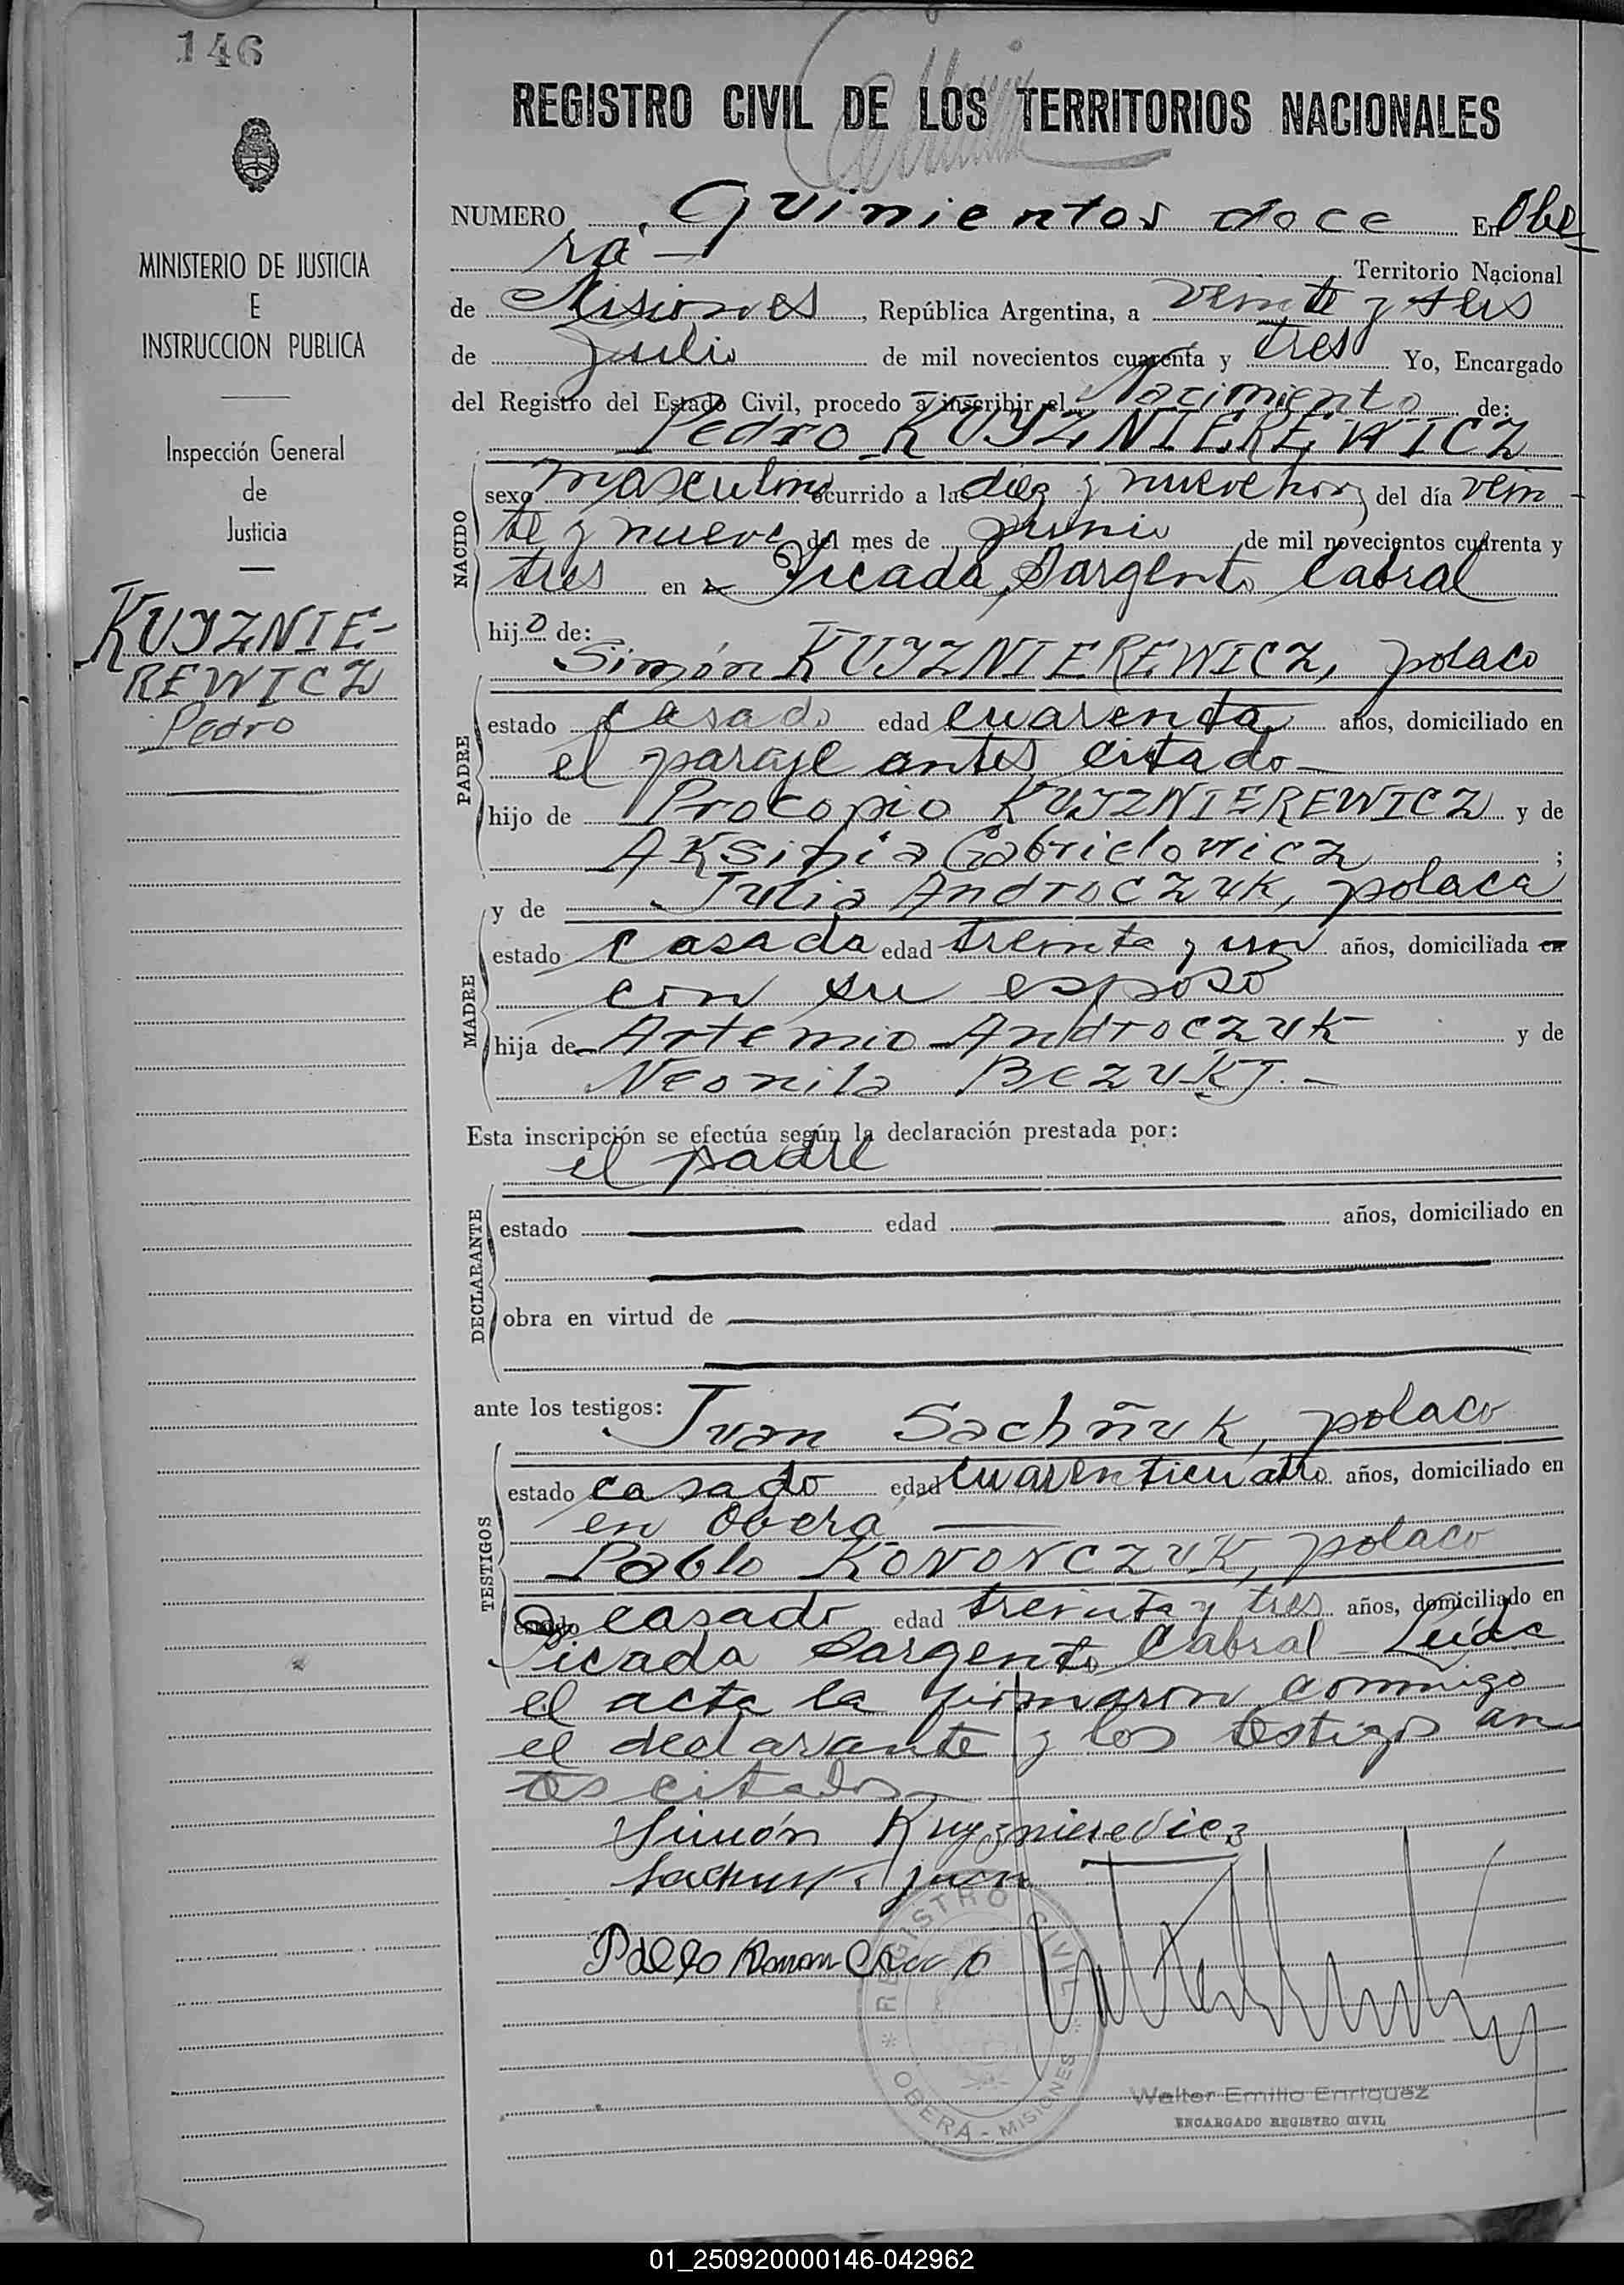 146
MINISTERIO DE JUSTICIA
E
INSTRUCCION PUBLICA
Inspección General
de
Justicia
KUYZNIE-
REWICZ
Pedro
REGISTRO CIVIL DE LOS TERRITORIOS NACIONALES
NUMERO Quinientos doce En Obe
rá - Territorio Nacional
de Misiones, República Argentina, a veinte y seis
de julio de mil novecientos cuarenta y tres Yo, Encargado
del Registro del Estado Civil, procedo a inscribir el Nacimiento de:
Pedro KUYZNIEREWICZ
NACIDO
sexo masculino ocurrido a las diez y nueve horas del día vein-
te y nueve del mes de junio de mil novecientos cuarenta y
tres en Picada Sargento Cabral
hijo de:
Simón KUYZNIEREWICZ, polaco
PADRE
estado casado edad cuarenta años, domiciliado en
el paraje antes citado-
hijo de Procopio KUYZNIEREWICZ y de
AKsinia Gabrielowicz ;
y de Julia Androczuk, polaca
MADRE
estado casada edad treinta y un años, domiciliada en
con su esposo
hija de Artemio Androczuk y de
Neonila BEZUKJ.-
Esta inscripción se efectúa según la declaración prestada por:
el padre
DECLARANTE
estado edad años, domiciliado en
obra en virtud de
ante los testigos:
Juan Sachñuk, polaco
TESTIGOS
estado casado edad cuarenticuatro años, domiciliado en
en Oberá
Pablo KONONCZUK, polaco
estado casado edad treinta y tres años, domiciliado en
Picada Sargento Cabral - Leída
el acta la firmaron conmigo
el declarante y los testigos an
tes citados
Simón Kuyznierevicz
Sachnuk juan
Pablo
REGISTRO CIVIL
OBERÁ - MISIONES
Walter Emilio Enriquez
ENCARGADO REGISTRO CIVIL
01_250920000146-042962